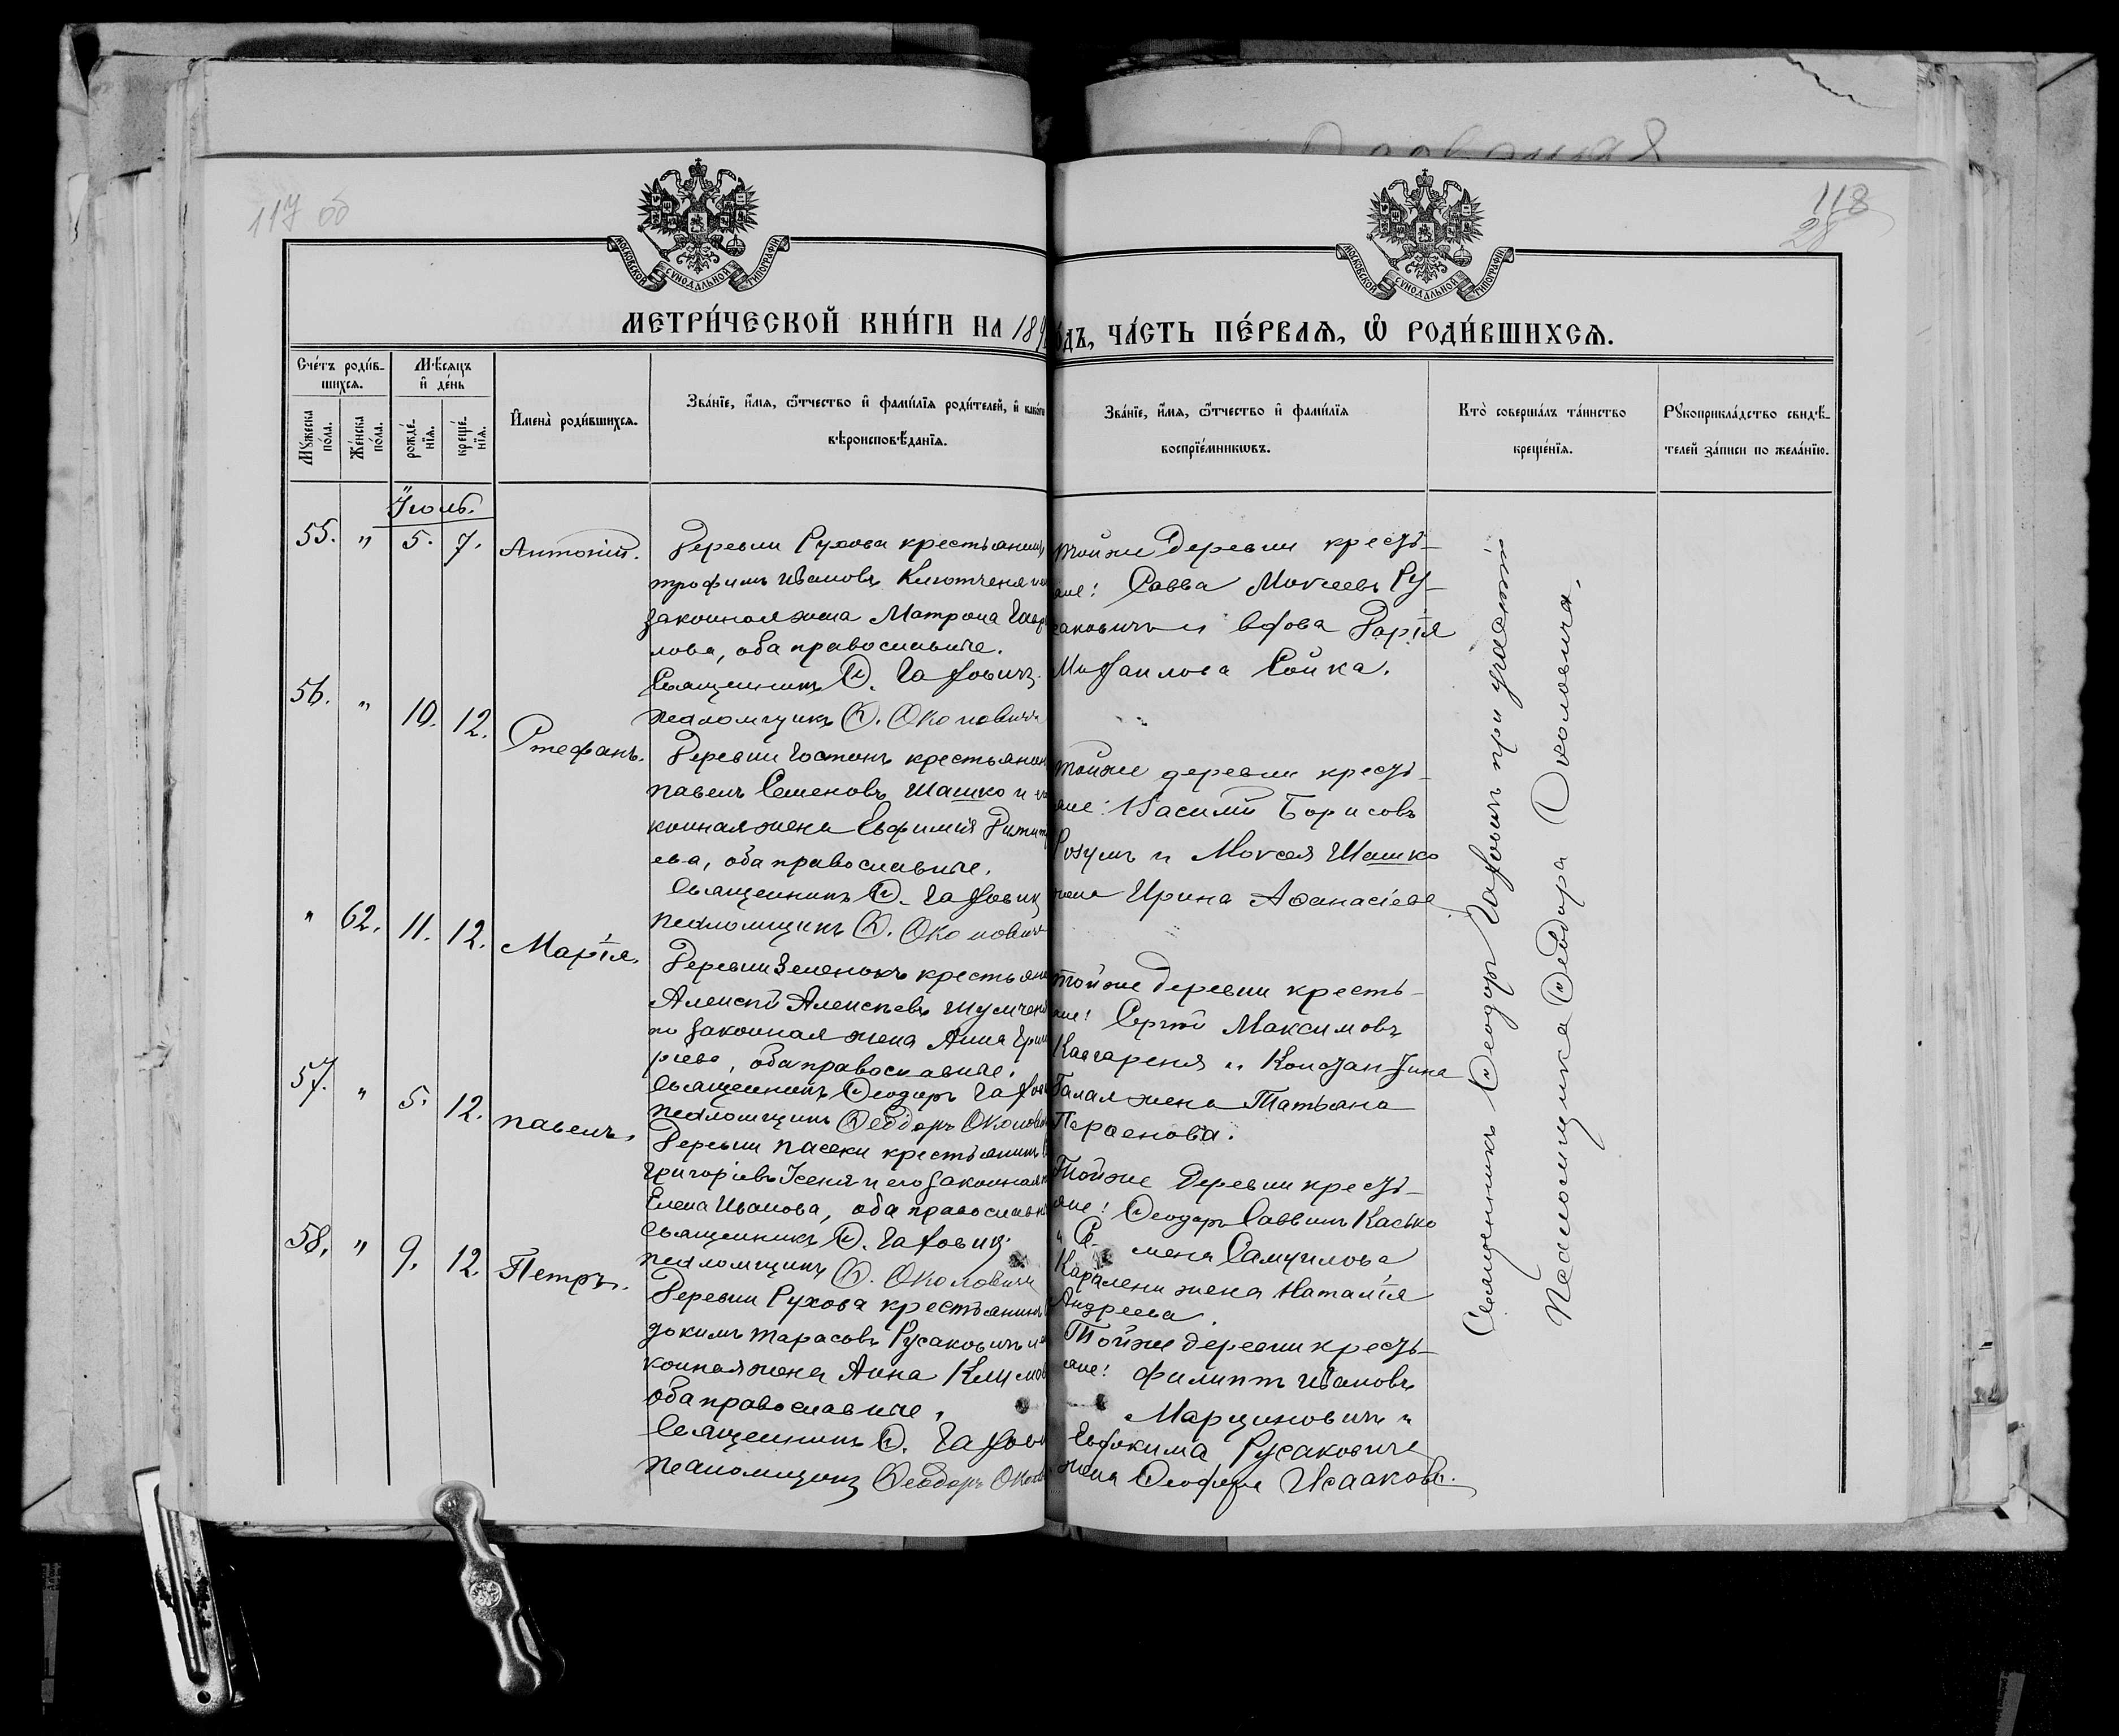 117 об
118
28
МОСКОВСКОЙ СѴНОДАЛЬНОЙ ТИПОГРАФІИ
МОСКОВСКОЙ СѴНОДАЛЬНОЙ ТИПОГРАФІИ
МЕТРИ́ЧЕСКОЙ КНИ́ГИ НА 189
ДЪ, ЧА́СТЬ ПЕ́РВАѦ, Ѡ҆ РОДИ́ВШИХСѦ.
Сче́тъ роди́в-
шихсѧ.
Мꙋжеска по́ла.
Же́нска по́ла.
Мѣ́сяцъ
и҆ де́нь
рожде́-
нїѧ.
креще́-
нїѧ.
И҆мена̀ роди́вшихсѧ.
Зва́нїе, и҆́мѧ, ѻ҆́тчество и҆ фами́лїѧ роди́телей, и҆ како́гѡ
вѣроисповѣ́данїѧ.
Зва́нїе, и҆́мѧ, ѻ҆́тчество и҆ фами́лїѧ
воспрїе́мникѡвъ.
Кто̀ соверша́лъ та́инство
креще́нїѧ.
Рꙋкоприкла́дство свидѣ́-
телей за́писи по жела́нїю.
Іюль.
55. " 5. 7. Антоній.
Деревни Рухова крестьянинъ
Трофимъ Ивановъ Клютченя и
законная жена Матрона Гавр
лова, оба православные.
Священникъ Ѳ. Гахович
Псаломщикъ Ѳ. Околовичъ
тойже деревни кресть-
яне: Савва Моисеевъ Ру-
саковичъ и вдова Дарія
Михаилова Сойка.
56. " 10. 12. Стефанъ.
Деревни Гостокъ крестьянин
Павелъ Семеновъ Шашко и
конная жена Евфимія Димит
ева, оба православные.
Священникъ Ѳ. Гахович
Псаломщикъ Ѳ. Околович
тойже деревни кресть-
яне: Василій Борисовъ
Розумъ и Моисея Шашко
жена Ирина Аѳанасіева
" 62. 11. 12. Марія.
Деревни Зеленокъ крестьяни
Алексій Алексѣевъ Шулчен
законная жена Анна Григ
ріева, оба православные.
Священникъ Ѳеодоръ Гахов
Псаломщикъ Ѳеодоръ Околов
тойже деревни кресть-
яне: Сергій Максимовъ
и Константина
Галая жена Татьяна
Парѳенова.
57. " 5. 12. Павелъ.
Деревни Пасеки крестьянинъ
Григорьевъ Ксеня и его законная
Елена Иванова, оба православн
Священникъ Ѳ. Гахович
Псаломщикъ Ѳ. Околовичъ
Тойже деревни кресть-
яне: Ѳеодоръ Саввинъ Касько
Самуилова
жена Наталія
Андреева.
58. " 9. 12. Петръ.
Деревни Рухова крестьянинъ
докимъ Тарасовъ Русаковичъ и
конная жена Анна Климов
оба православные.
Священникъ Ѳ. Гахов
Псаломщикъ Ѳеодоръ Окол
Тойже деревни кресть-
яне: Филиппъ Ивановъ
Марциновичъ и
Евдокима Русаковича
жена Исааков.
Священникъ Ѳеодоръ Гаховичъ при участіи
Псаломщика Ѳеодора Околовича.